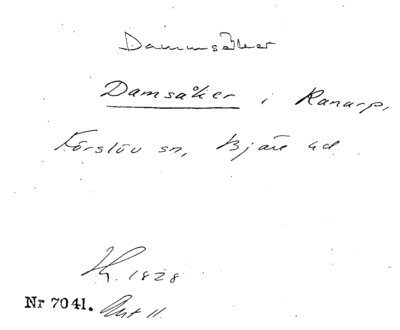 Dammsåker
Damsåker i Ranarp,
Förslöv sn, Bjäre hd
1828
Nr 7041. Ant 11.